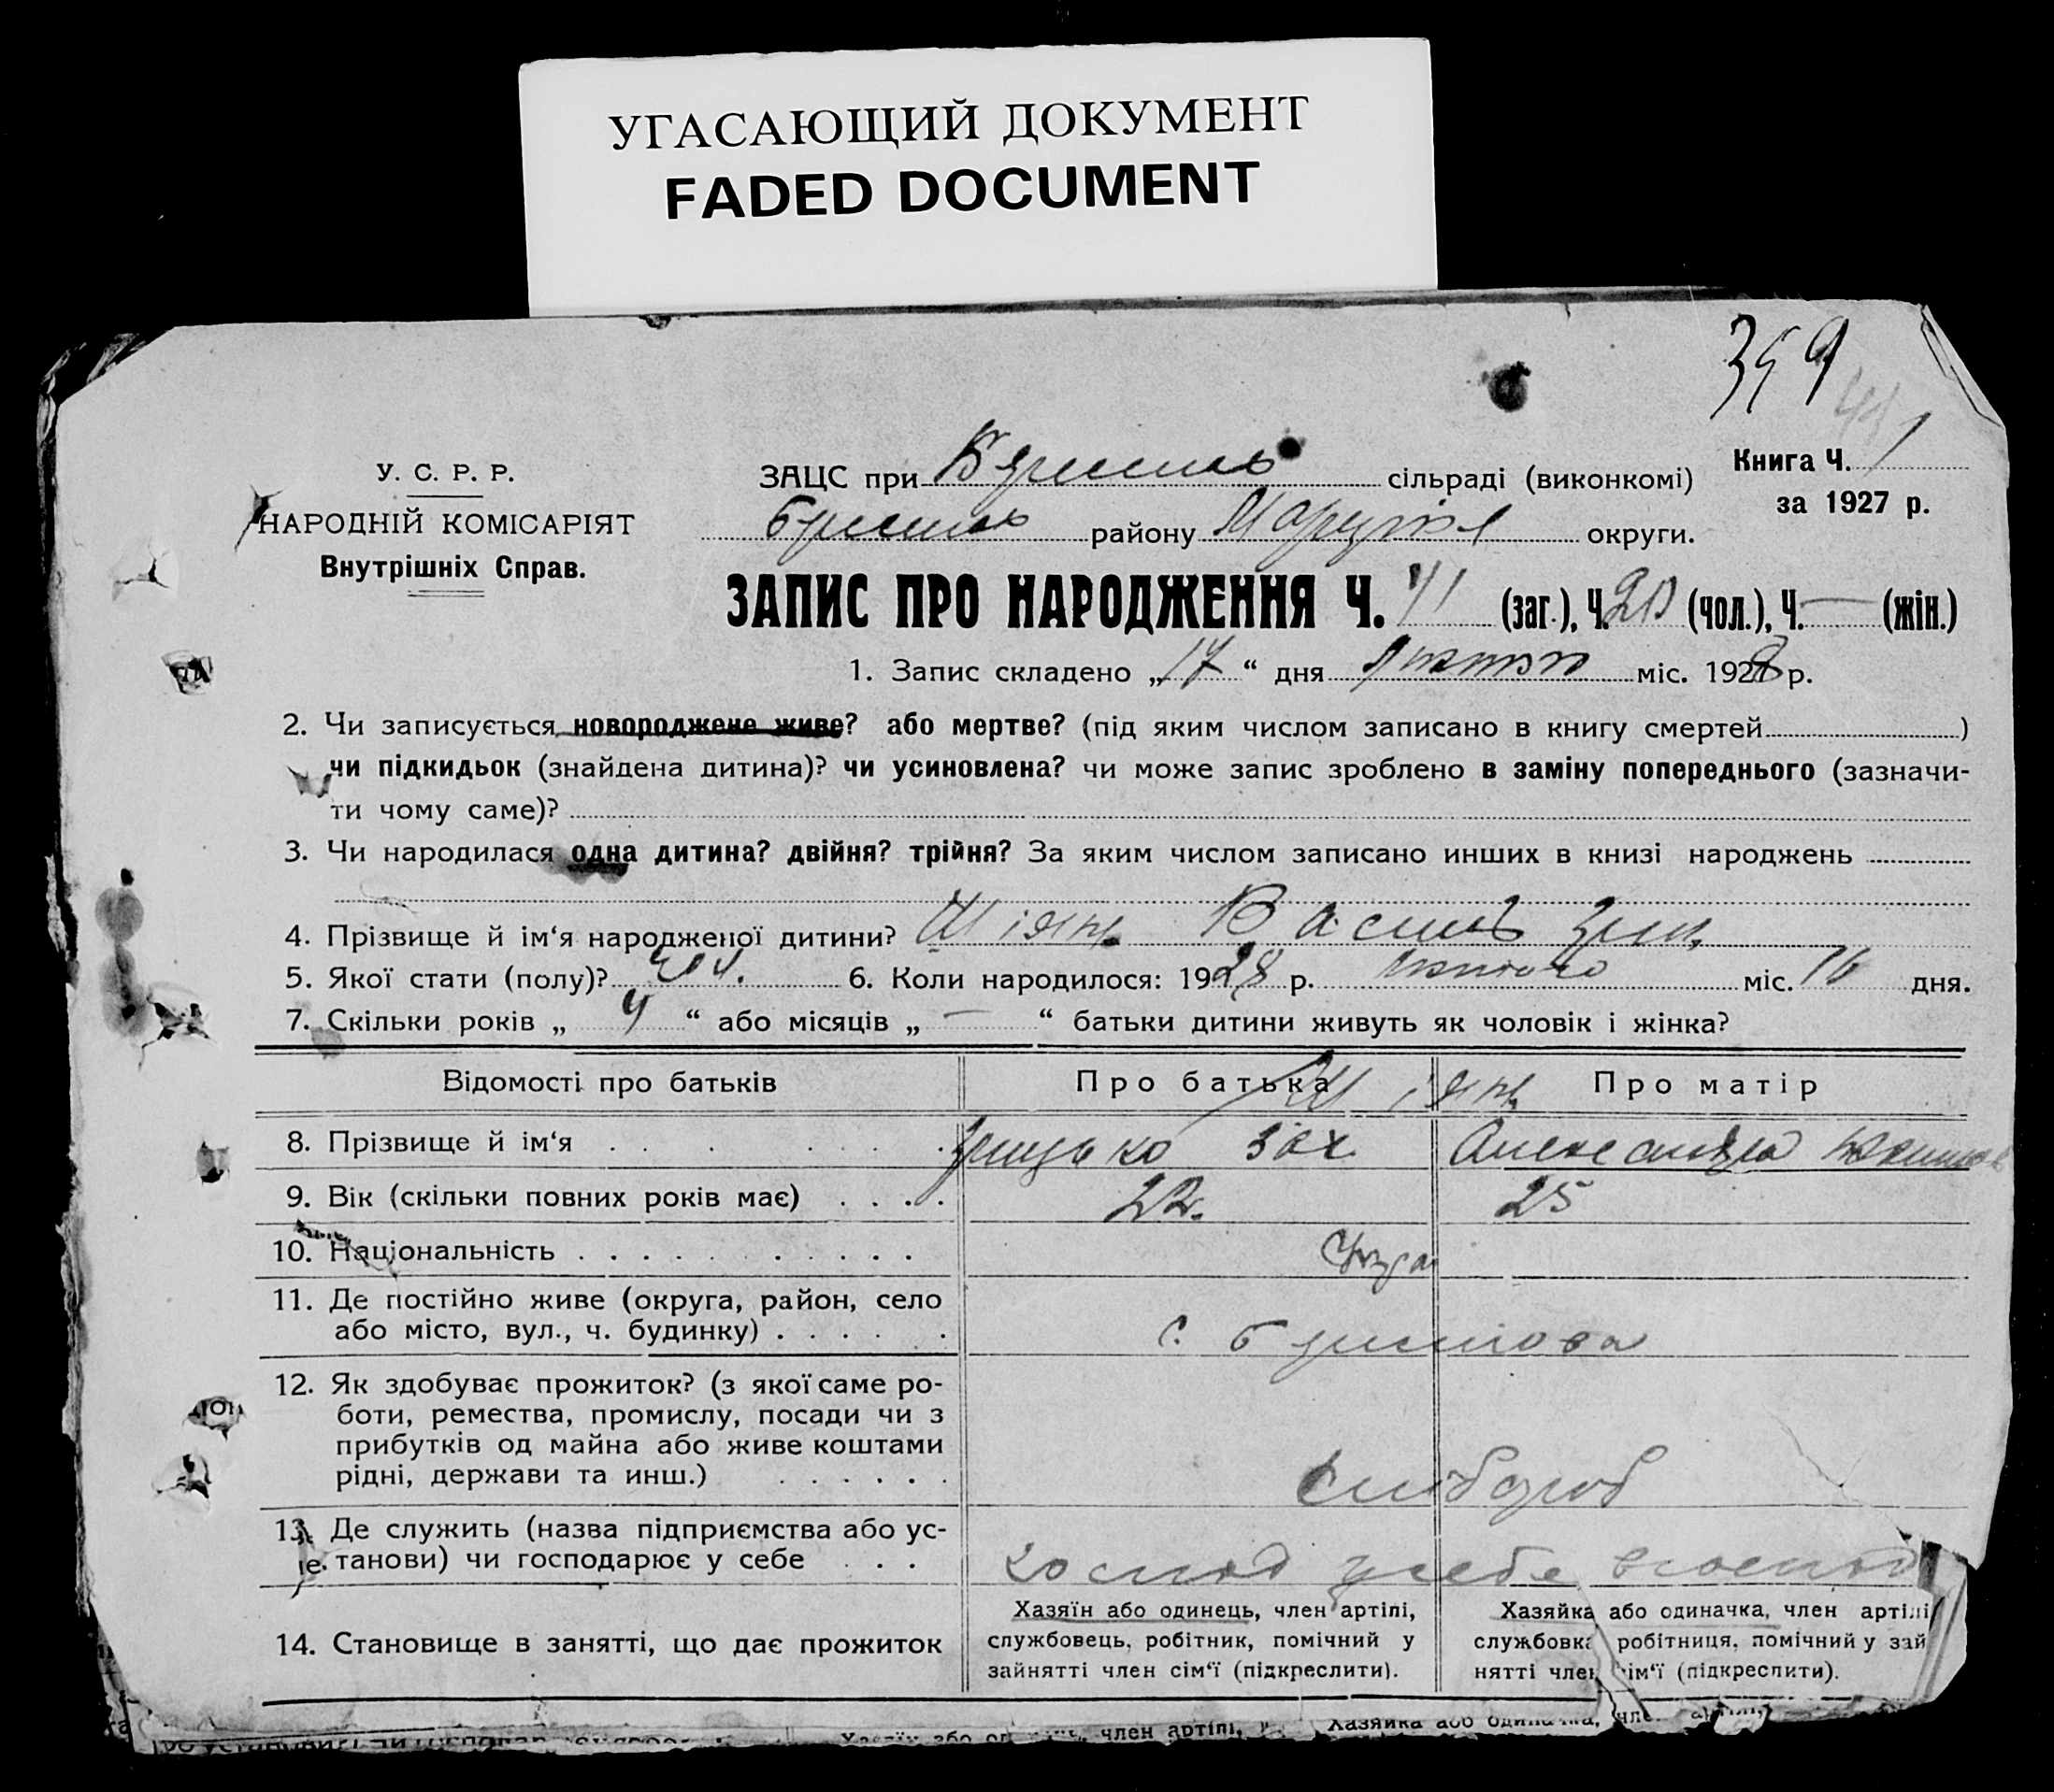 УГАСАЮЩИЙ ДОКУМЕНТ
FADED DOCUMENT
359
У. С. Р. Р.
НАРОДНІЙ КОМІСАРІЯТ
Внутрішніх Справ.
ЗАЦС при сільраді (виконкомі)
району округи.
Книга Ч. 1
за 1927 р.
ЗАПИС ПРО НАРОДЖЕННЯ Ч. 41 (заг.), Ч. (чол.), Ч. — (жін.)
1. Запис складено „17“ дня лютого міс. 1928 р.
2. Чи записується новороджене живе? або мертве? (під яким числом записано в книгу смертей )
чи підкидьок (знайдена дитина)? чи усиновлена? чи може запис зроблено в заміну попереднього (зазначи-
ти чому саме)?
3. Чи народилася одна дитина? двійня? трійня? За яким числом записано инших в книзі народжень
4. Прізвище й ім‘я народженої дитини? Василь
5. Якої стати (полу)? чол. 6. Коли народилося: 1928 р. лютого міс. 16 дня.
7. Скільки років „ 4 “ або місяців „ — “ батьки дитини живуть як чоловік і жінка?
Відомості про батьків Про батька Про матір
8. Прізвище й ім‘я Грицько Зах. Александра
9. Вік (скільки повних років має) 22. 25
10. Національність
11. Де постійно живе (округа, район, село
або місто, вул., ч. будинку) с.
12. Як здобуває прожиток? (з якої саме ро-
боти, ремества, промислу, посади чи з
прибутків од майна або живе коштами
рідні, держави та инш.) хлібороб
13. Де служить (назва підприємства або ус-
танови) чи господарює у себе господ у себе
14. Становище в занятті, що дає прожиток
Хазяїн або одинець, член артілі,
службовець, робітник, помічний у
зайнятті член сім‘ї (підкреслити).
Хазяйка або одиначка, член артілі
службовка робітниця, помічний у зай
нятті член сім‘ї (підкреслити).